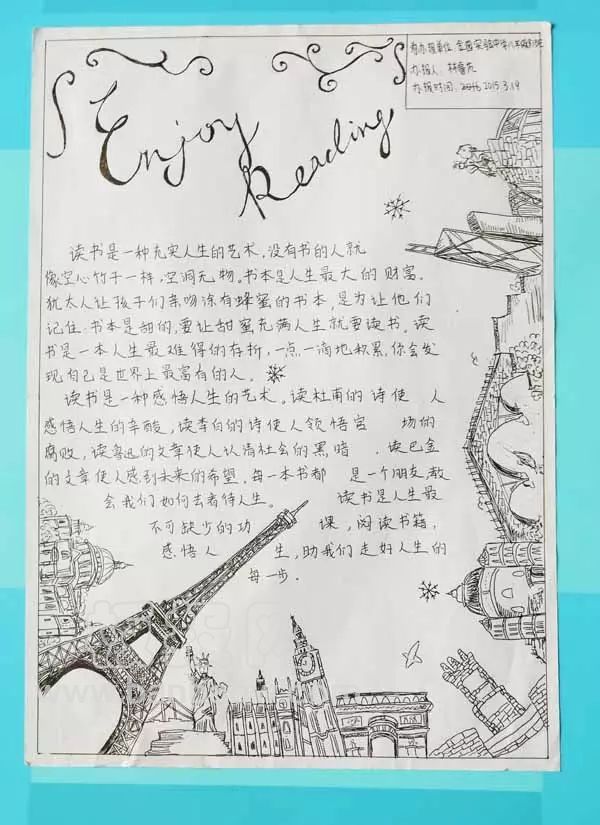 Enjoy
Reading
办报单位:金西实验中学八年级
办报人:林
办报时间: 2015.3.19
读书是一种充实人生的艺术,没有书的人就
像空心竹子一样,空洞无物。书本是人生最大的财富。
犹太人让孩子们亲吻涂有蜂蜜的书本,是为让他们
记住:书本是甜的,要让甜蜜充满人生就要读书。读
书是一本人生最难得的存折,一点一滴地积累,你会发
现自己是世界上最富有的人。
读书是一种感悟人生的艺术。读杜甫的诗使 人
感悟人生的辛酸,读李白的诗使人领悟官 场的
腐败,读鲁迅的文章使人认清社会的黑暗 ,读巴金
的文章使人感到未来的希望,每一本书都 是一个朋友,教
会我们如何去看待人生。 读书是人生最
不可缺少的功 课,阅读书籍,
感悟人 生,助我们走好人生的
每一步.